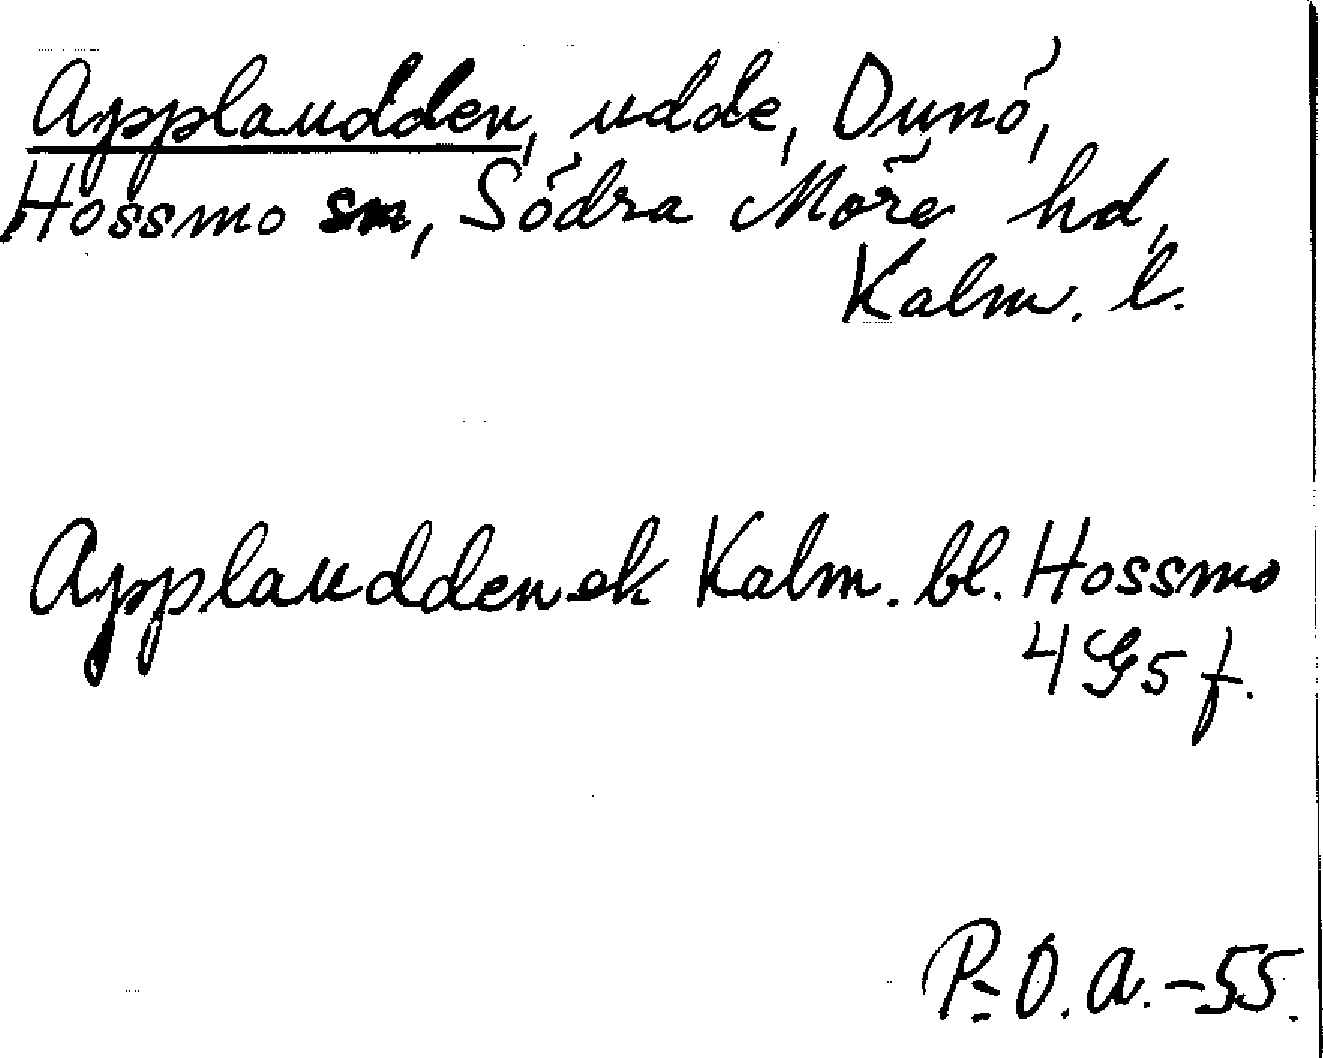 Applaudden, udde, Dunö,
Hossmo sn, Södra Möre hd,
Kalm. l.
Applaudden ek Kalm. bl. Hossmo
4 G5 f.
P-O.A.-55.